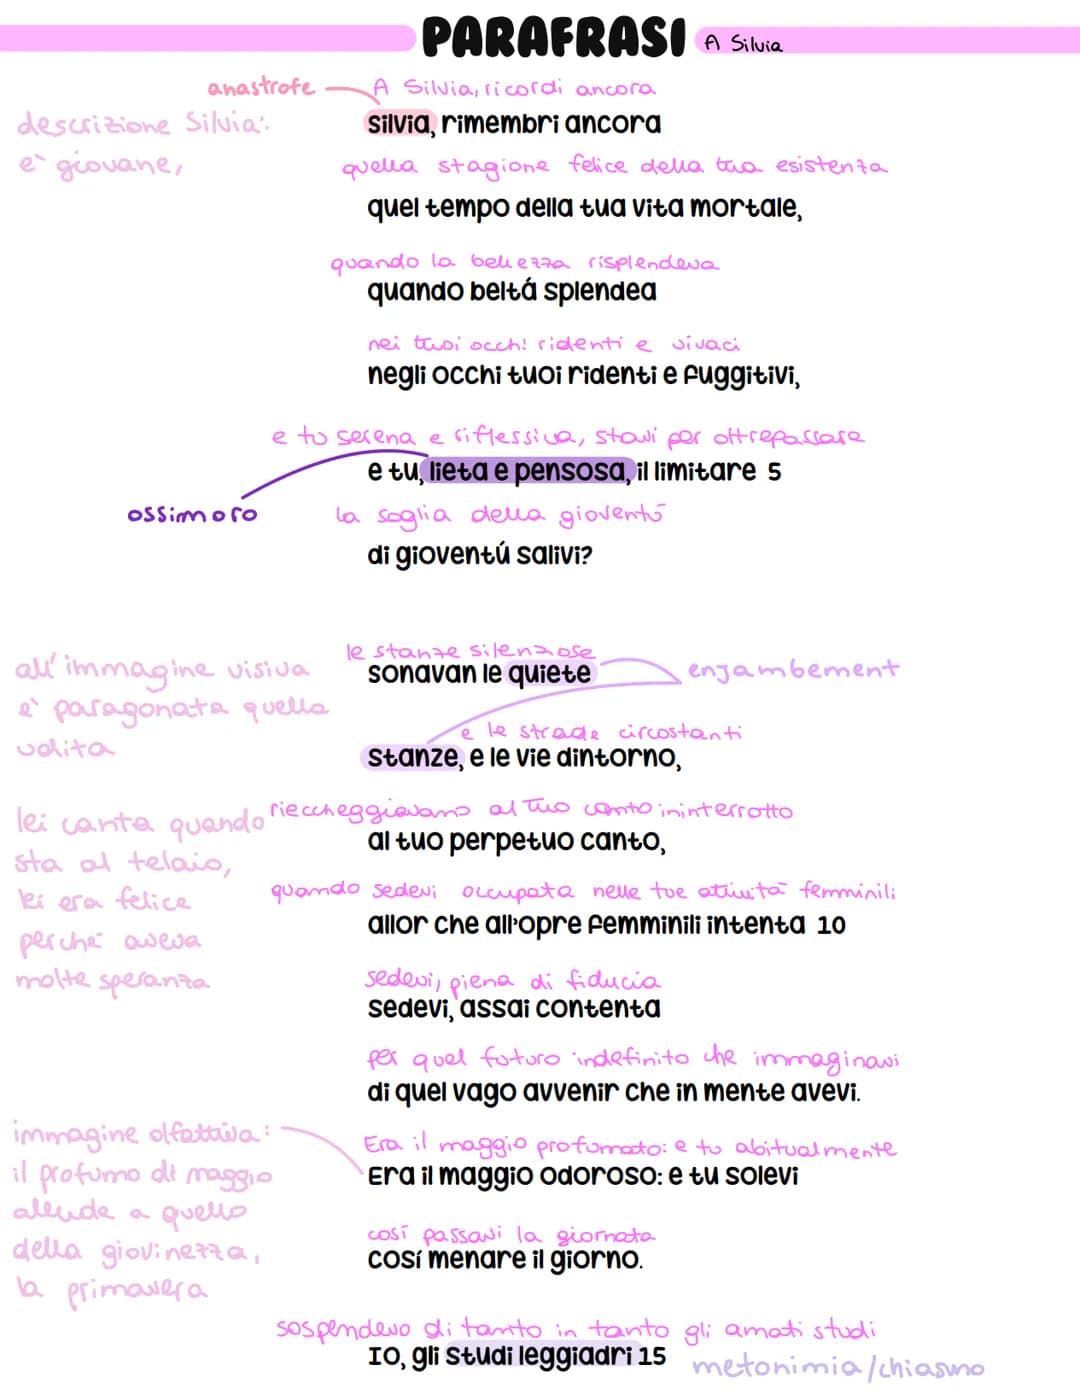 PARAFRASI A Silvia
anastrofe A Silvia, ricordi ancora
descrizione Silvia:
silvia, rimembri ancora
e' giovane,
quella stagione felice della tua esistenza
quel tempo della tua vita mortale,
quando la bellezza risplendeva
quando beltá splendea
nei tuoi occhi ridenti e vivaci
negli occhi tuoi ridenti e fuggitivi,
e tu serena e riflessiva, stavi per oltrepassare
e tu, lieta e pensosa, il limitare 5
ossimoro
la soglia della gioventù
di gioventú salivi?
le stanze silenziose
all'immagine visiva
e' paragonata quella
udita
sonavan le quiete
enjambement
e le strade circostanti
stanze, e le vie dintorno,
lei canta quando
sta al telaio,
lei era felice
perchè aveva
molte speranza
rieccheggiavano al tuo canto ininterrotto
al tuo perpetuo canto,
quando sedevi occupata nelle tue attività femminili
allor che all'opre femminili intenta 10
sedevi, piena di fiducia
sedevi, assai contenta
per quel futuro indefinito che immaginavi
di quel vago avvenir che in mente avevi.
immagine olfattiva:
il profumo di maggio
allude a quello
della giovinezza,
la primavera
Era il maggio profumato: e tu abitualmente
Era il maggio odoroso: e tu solevi
così passavi la giornata
cosí menare il giorno.
sospendevo di tanto in tanto gli amati studi
IO, gli studi leggiadri 15
metonimia/chiasmo